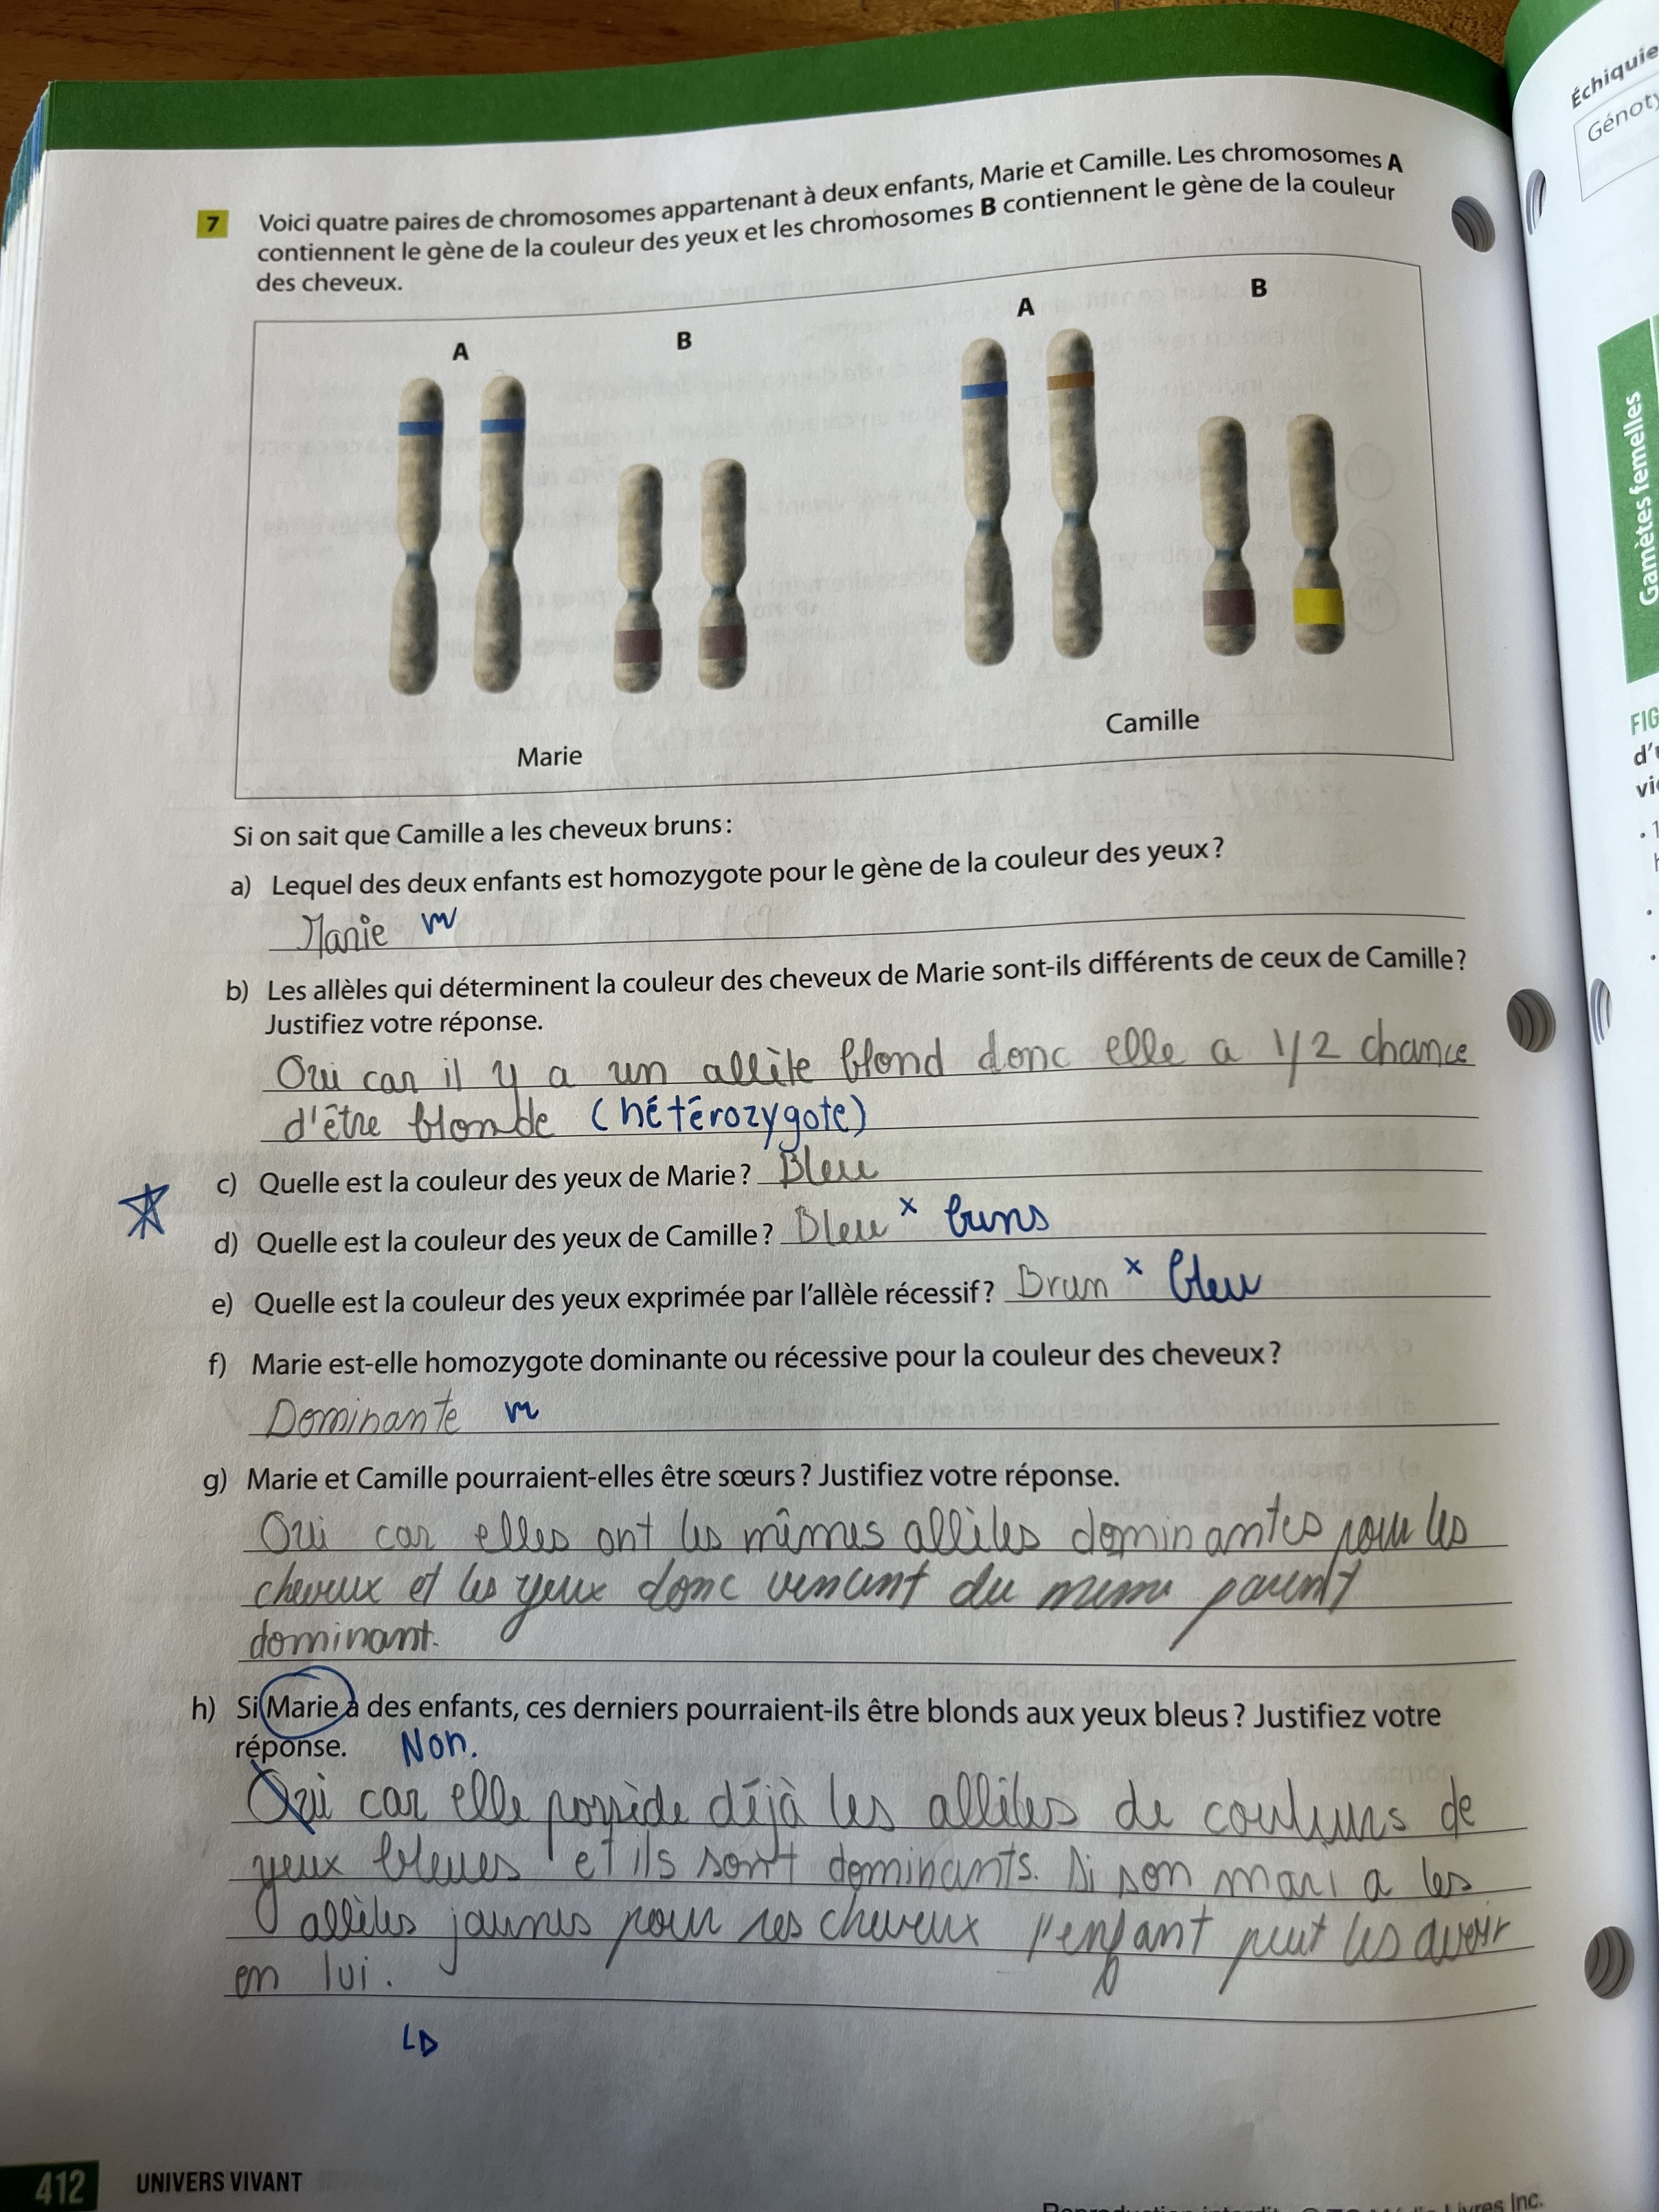 7 Voici quatre paires de chromosomes appartenant à deux enfants, Marie et Camille. Les chromosomes A
contiennent le gène de la couleur des yeux et les chromosomes B contiennent le gène de la couleur
des cheveux.
A B A B
Marie Camille
Si on sait que Camille a les cheveux bruns :
a) Lequel des deux enfants est homozygote pour le gène de la couleur des yeux ?
Marie
b) Les allèles qui déterminent la couleur des cheveux de Marie sont-ils différents de ceux de Camille ?
Justifiez votre réponse.
Oui car il y a un allèle blond donc elle a 1/2 chance
d'être blonde (hétérozygote)
c) Quelle est la couleur des yeux de Marie ? Bleu
d) Quelle est la couleur des yeux de Camille ? Bleu x bruns
e) Quelle est la couleur des yeux exprimée par l'allèle récessif ? Brun x bleu
f) Marie est-elle homozygote dominante ou récessive pour la couleur des cheveux ?
Dominante
g) Marie et Camille pourraient-elles être sœurs ? Justifiez votre réponse.
Oui car elles ont les mêmes allèles dominantes pour les
cheveux et les yeux donc vencent du meme parent
dominant.
h) Si Marie a des enfants, ces derniers pourraient-ils être blonds aux yeux bleus ? Justifiez votre
réponse. Non.
Oui car elle possède déjà les allèles de couleurs de
yeux bleues et ils sont dominants. Si son mari a les
allèles jaunes pour ses cheveux l'enfant peut les avoir
en lui.
412 UNIVERS VIVANT
Échiquie
Génoty
Gamètes femelles
FIG
d'u
vi